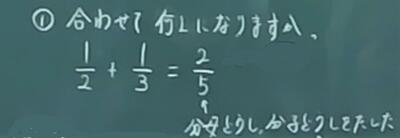 ① 合わせて何Lになりますか。
1/2 + 1/3 = 2/5
↑
分母どうし、分子どうしをたした